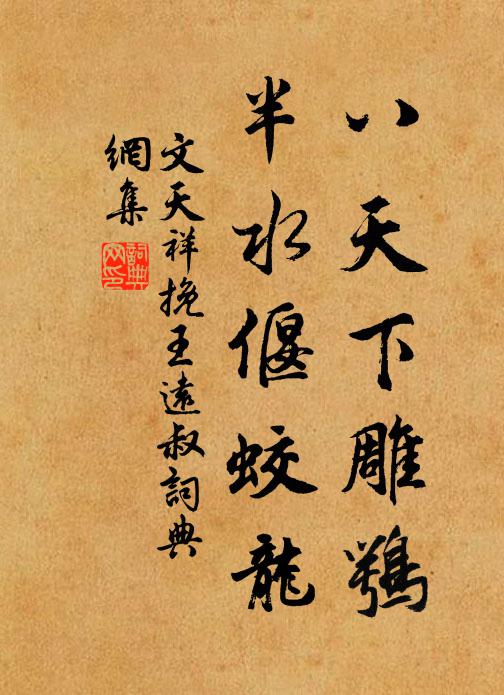 八天下雕鶚
半水偃蛟龍
文天祥挽王遠叔詞典
網集
詞典
网印